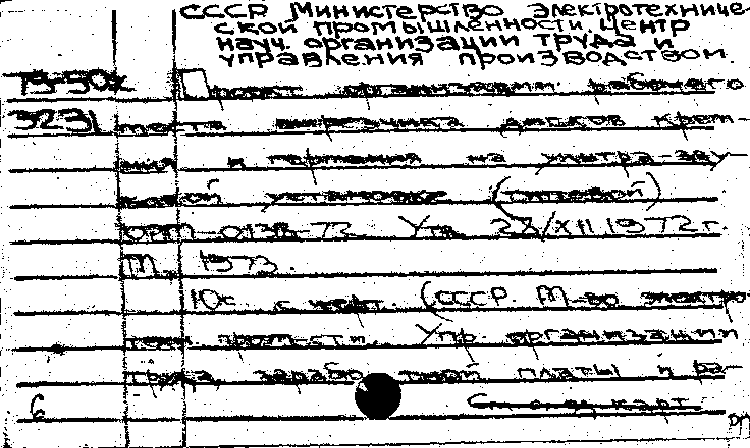 СССР Министерство электротехниче-
ской промышленности. Центр
науч. организации труда и
управления производством.
73-50к Проект организации рабочего
3231 места вырезчика дисков крем-
ния и германия на ультра-зву-
ковой установке (типовой)
ОРМ-0138-72. Утв. /XII 1972 г.
М., 1973.
10с. с черт. (СССР. М-во электро-
техн. пром-сти. Упр. организации
труда, заработной платы и ра-
6 карт.